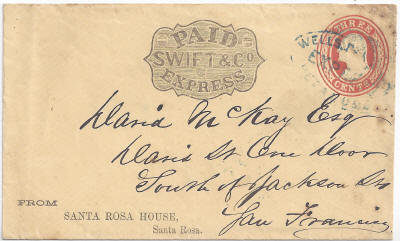 PAID
SWIFT & Co
EXPRESS
THREE
CENTS
WELLS,
David McKay Esq
Davis St One Door
South of Jackson St
San Francisco
FROM
SANTA ROSA HOUSE,
Santa Rosa.